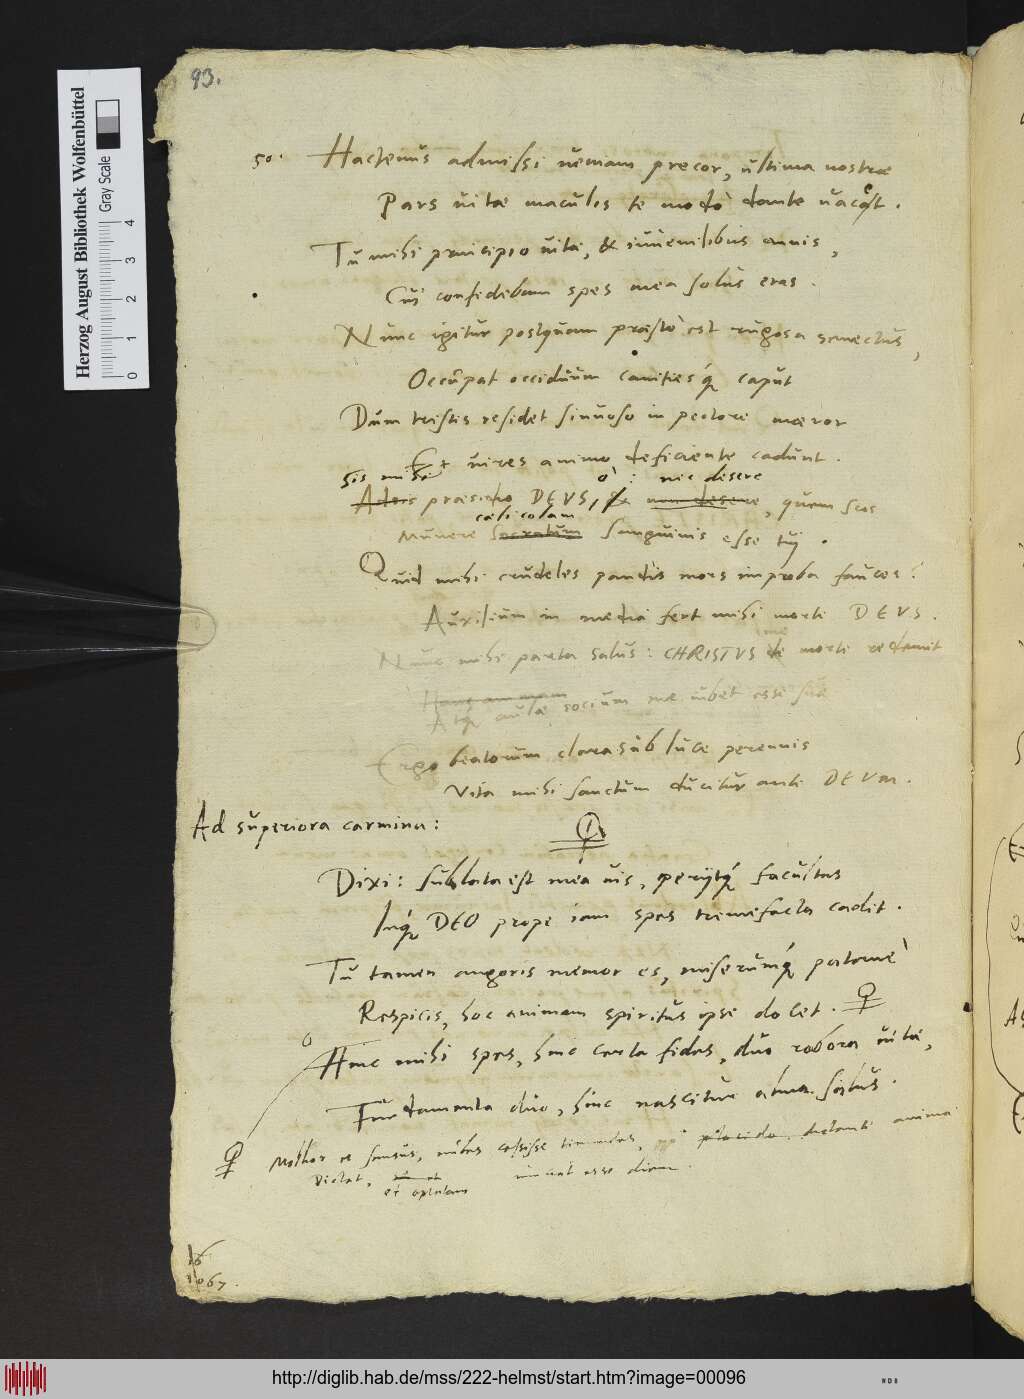 93.
50. Hactenus admissi veniam precor, ultima nostrae
Pars vitae maculis te modo dante vacet.
Tu mihi principio vitae, & iuvenilibus annis,
Cui confidebam spes mea solus eras.
Nunc igitur postquam praesto est rugosa senectus,
Occupat occiduum canitiesq́ue caput
Dum tristis residet sinuoso in pectore maeror
Et vires animo deficiente cadunt.
Sis mihi ô : nec desere
Adsis praesidio DEUS, & non desere, quem scis
caelicolam
Munere Socratum sanguinis esse tui.
Quid mihi crudeles pandis mors improba fauces?
Auxilium in media fert mihi morte DEUS.
Nunc mihi parta salus: CHRISTUS de morte redemit
Atq́ue aulae socium me iubet esse suae
Ergo beatorum clara sub luce perennis
Vita mihi sanctum ducitur ante DEUM.
Ad superiora carmina:
Dixi: sublata est mea vis, perijtq́ue facultas
Inq́ue DEO prope iam spes tremefacta cadit.
Tu tamen angoris memor es, miserumq́ue paterne
Respicis, hoc animam spiritus ipse docet.
Hinc mihi spes, hinc certa fides, duo robora vitae,
Fundamenta duo, hinc nascitur alma salus.
Mollior et sensus, nubes cessisse timendas, placido dictanti anima
Dictat, et optatam iuvat esse diem.
16
1067.
Herzog August Bibliothek Wolfenbüttel
Gray Scale
0 1 2 3 4
http://diglib.hab.de/mss/222-helmst/start.htm?image=00096